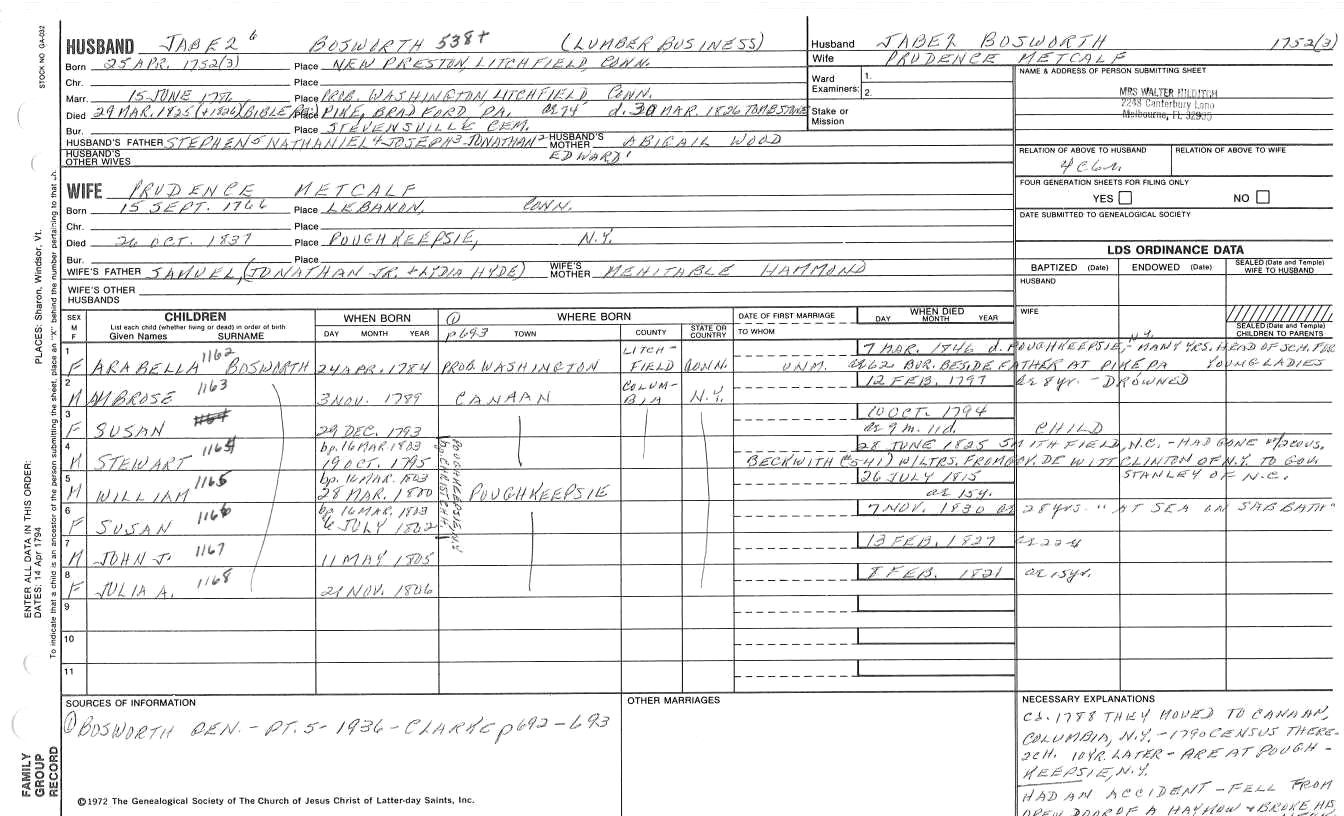 STOCK NO. GA-032
PLACES: Sharon, Windsor, Vt.
ENTER ALL DATA IN THIS ORDER:
DATES: 14 Apr 1794
To indicate that a child is an ancestor of the person submitting the sheet, place an "X" behind the number pertaining to that
FAMILY GROUP RECORD
HUSBAND JABEZ 6 BOSWORTH 538+ (LUMBER BUSINESS)
Born 25 APR. 1752(3) Place NEW PRESTON, LITCHFIELD, CONN.
Chr. Place
Marr. 15 JUNE 1786 Place PROB. WASHINGTON, LITCHFIELD CONN.
Died 29 MAR. 1825 (+1826)(BIBLE Place PIKE, BRADFORD, PA. ae 74 d. 30 MAR. 1826 TOMBSTONE
Bur. Place STEVENSVILLE CEM.
HUSBAND'S FATHER STEPHEN 5 NATHANIEL 4 JOSEPH 3 JONATHAN 2 EDWARD 1 HUSBAND'S MOTHER ABIGAIL WOOD
HUSBAND'S OTHER WIVES
WIFE PRUDENCE METCALF
Born 15 SEPT. 1766 Place LEBANON, CONN.
Chr. Place
Died 26 OCT. 1837 Place POUGHKEEPSIE, N.Y.
Bur. Place
WIFE'S FATHER SAMUEL, (JONATHAN JR. + LYDIA HYDE) WIFE'S MOTHER MEHITABLE HAMMOND
WIFE'S OTHER HUSBANDS
Husband JABEZ BOSWORTH 1752(3)
Wife PRUDENCE METCALF
Ward Examiners: 1.
2.
Stake or Mission
NAME & ADDRESS OF PERSON SUBMITTING SHEET
MRS WALTER HILDITCH
2248 Canterbury Lane
Melbourne, FL 32935
RELATION OF ABOVE TO HUSBAND RELATION OF ABOVE TO WIFE
FOUR GENERATION SHEETS FOR FILING ONLY
YES NO
DATE SUBMITTED TO GENEALOGICAL SOCIETY
LDS ORDINANCE DATA
BAPTIZED (Date) ENDOWED (Date) SEALED (Date and Temple) WIFE TO HUSBAND
HUSBAND
WIFE
SEALED (Date and Temple) CHILDREN TO PARENTS
SEX M F CHILDREN WHEN BORN (1) p693 WHERE BORN DATE OF FIRST MARRIAGE WHEN DIED
List each child (whether living or dead) in order of birth
Given Names SURNAME DAY MONTH YEAR TOWN COUNTY STATE OR COUNTRY TO WHOM DAY MONTH YEAR
1 F ARABELLA 1162 BOSWORTH 24 APR. 1784 PROB. WASHINGTON LITCHFIELD CONN. UNM. 7 MAR. 1846 d. POUGHKEEPSIE, N.Y. - MANY YRS. HEAD OF SCH. FOR YOUNG LADIES
ae 62 BUR. BESIDE FATHER AT PIKE PA
2 M AMBROSE 1163 3 NOV. 1789 CANAAN COLUMBIA N.Y. 12 FEB. 1797 ae 8 yr. - DROWNED
3 F SUSAN 29 DEC. 1793 10 OCT. 1794
ae 9 m. 11 d. CHILD
4 M STEWART 1164 bp. 16 MAR. 1803
19 OCT. 1795 28 JUNE 1825 SMITHFIELD, N.C. - HAD GONE w/2 COUS.
BECKWITH (#541) W/LTRS. FROM GOV. DE WITT CLINTON OF N.Y. TO GOV. STANLEY OF N.C.
5 M WILLIAM 1165 bp. 16 MAR. 1803
28 MAR. 1800 POUGHKEEPSIE 26 JULY 1815
ae 15 y.
6 F SUSAN 1166 bp. 16 MAR. 1803
6 JULY 1802 7 NOV. 1830 ae 28 yrs. "AT SEA ON SABBATH"
bp. CHRIST CH. POUGHKEEPSIE, N.Y.
7 M JOHN J. 1167 11 MAY 1805 13 FEB. 1827 ae 22 y
8 F JULIA A. 1168 21 NOV. 1806 8 FEB. 1821 ae 15 yr.
9
10
11
SOURCES OF INFORMATION
(1) BOSWORTH GEN. - PT. 5 - 1936 - CLARKE p692-693
OTHER MARRIAGES
NECESSARY EXPLANATIONS
Ca. 1788 THEY MOVED TO CANAAN,
COLUMBIA, N.Y. - 1790 CENSUS THERE-
2CH. 10YR. LATER - ARE AT POUGH-
KEEPSIE, N.Y.
HAD AN ACCIDENT - FELL FROM
OPEN DOOR OF A HAYMOW + BROKE HIS
©1972 The Genealogical Society of The Church of Jesus Christ of Latter-day Saints, Inc.